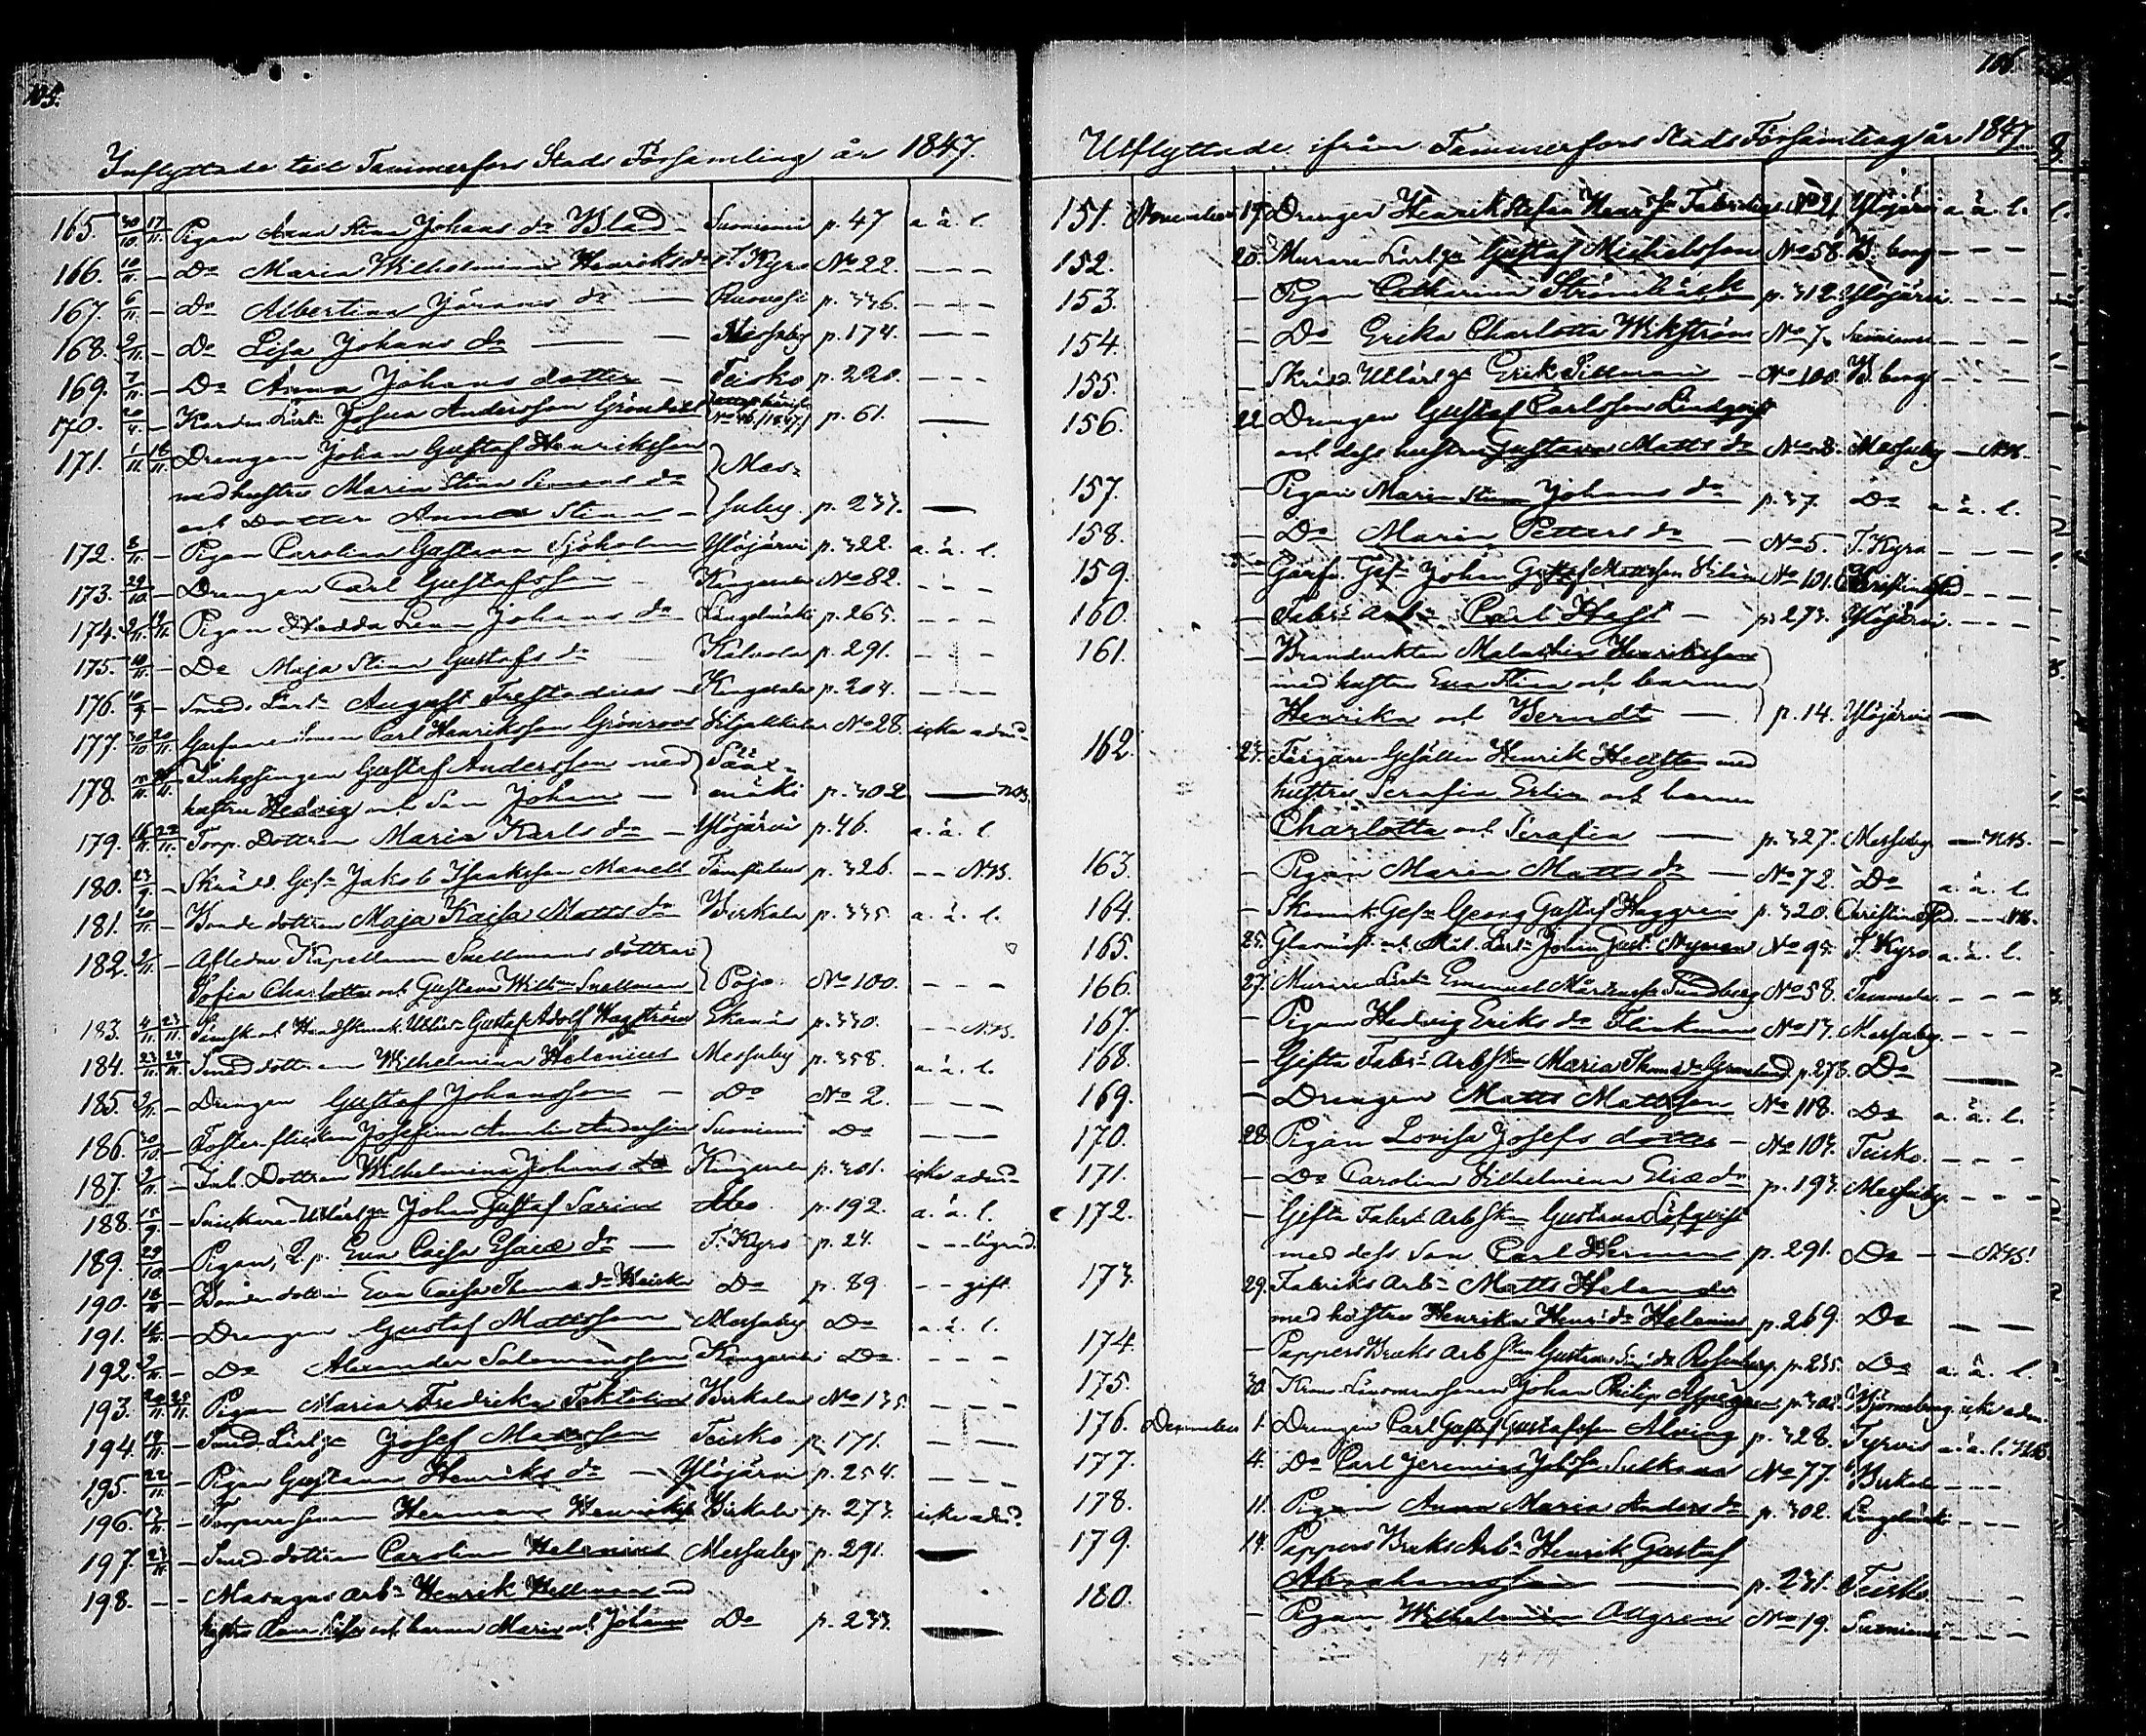 105.
Inflyttade till Tammerfors Stads Församling år 1847.
165. 30/10 17/11 Pigan Anna Stina Johans dr Blad – Suoniemi p. 47 a. ä. l.
166. 10/11 – Do Maria Wilhelmina Henriksdr T. Kyro No 22. – – –
167. 6/11 – Do Albertina Görans dr — Ruovesi p. 336. – – –
168. 2/11 – Do Lisa Johans dr — Messuby p. 174. – – –
169. 7/11 – Do Anna Johans dotter – Teisko p. 220. – – –
170. 20/4 – Josua Andersson No 46/1847/ p. 61. —
171. 1/11 16/11 Drengen Johan Gustaf Henriksson
med hustru Maria Stina Simons dr } Mes-
och Dotter Anna Stina – suby. p. 233. —
172. 8/11 – Pigan Carolina Gustava Sjöholm Ylöjärvi p. 322. a. ä. l.
173. 29/10 – Drengen Carl Gustafsson – Kangasala No 82. – – –
174. 2/11 19/11 Pigan Hedda Lena Johans dr Längelmäki p. 265. – – –
175. 10/11 – Do Maja Stina Gustafs dr Kalvola p. 291. – – –
176. 10/9 – Smeds Lärl. August Trestadius – Kangasala p. 204. – – –
177. 30/10 20/11 Carl Henriksson Grönroos No 28. icke adm.
178. 15/11 Inhysingen Gustaf Andersson med } Sääx-
hustru Hedvig och Son Johan — mäki p. 302 — NB.
179. 16/11 22/11 Torp. Dottren Maria Karls dr – Ylöjärvi p. 46. a. ä. l.
180. 23/9 – Skrädd. Ges. Jakob Isaksson Manell p. 326. – – NB.
181. 20/11 – Bonde dottren Maja Kaisa Matts dr Birkala p. 335. a. ä. l.
182. 2/11 – Aflidne Kapellanen Snellmans döttrar
Sofia Charlotta och Gustava Wilhna Snellman } Pojo No 100. – – –
183. 4/11 23/11 Gustaf Adolf Hagström Ekenäs p. 330. – – NB.
184. 23/11 24/11 Smed dottren Wilhelmina Helenius Messuby p. 358. a. ä. l.
185. 2/11 – Drengen Gustaf Johansson – Do No 2. – – –
186. 30/10 – Foster flickan Josefina Amalia Andersson Suoniemi Do – – –
187. 2/11 – Inh. Dottren Wilhelmina Johans dr Kangasala p. 301. icke adm.
188. 15/9 – Snickare Utlärlge Johan Gustaf Sarin Åbo p. 192. a. ä. l.
189. 29/10 – Pigan, Q. p. Eva Caisa Esaiæ dr — T. Kyro p. 24. – –
190. 18/11 – Bonde dottren Eva Caisa Thomas dr Heiske Do p. 89 – – gift
191. 16/11 – Drengen Gustaf Mattsson Messuby Do a. ä. l.
192. 2/11 – Do Alexander Salomonsson Kangasala Do. – – –
193. 20/11 25/11 Pigan Maria Fredrika Tektolin Birkala No 135. – – –
194. 19/11 – Smed Lärlge Josef Mattsson Teisko p. 171. – – –
195. 22/11 – Pigan Gustava Henriks dr – Ylöjärvi p. 254. – – –
196. 13/11 – Torparesonen Herman Henriksson Birkala p. 273. icke adm.
197. 23/11 – Smed dottren Carolina Helenius Messuby p. 291. —
198. – – Masugns arb. Henrik Hellman med
hustru och barnen Maria och Johan Do p. 233. —
106.
Utflyttade ifrån Tammerfors Stads Församling år 1847.
151. November 17. Drengen Henrik Stefan Henrs. Fabritius No 21. Ylöjärvi a. ä. l.
152. 20. Murare Lärlge Gustaf Michelsson No 58. B:borg – – –
153. – Pigan Catharina Strömbäck p. 312. Ylöjärvi – – –
154. – Do Erika Charlotta Wikström No 7. Suoniemi – – –
155. – Skrädd. Utlärlge Erik Sillman – No 100. B:borg – – –
156. 22 Drengen Gustaf Carlsson Lindqvist
och dess hustru Gustava Matts dr No 8. Messuby – NB.
157. – Pigan Maria Stina Johans dr p. 37. Do a. ä. l.
158. – Do Maria Petters dr – No 5. T. Kyro – – –
159. – Garfv. Ges. Johan Gustaf Mattsson No 101. Christinestad – – –
160. – Fabrs Arb. Carl Hast – p. 273. Ylöjärvi – – –
161. – Brandvakten Malachias Henriksson
med hustru Eva Stina och barnen
Henrika och Berndt — } p. 14. Ylöjärvi —
162. 24. Färgare Gesällen Henrik Hedsten med
hustru Serafia Erlin och barnen
Charlotta och Serafia — p. 327. Messuby – NB.
163. – Pigan Maria Matts dr – No 72. Do a. ä. l.
164. – Skomak. Ges. Georg Gustaf Haggren p. 320. Christinestad. – – NB.
165. 25. Glasmäst. och Mål. Lärl. Johan Gust. Nyman No 95. T. Kyro a. ä. l.
166. 27. Murare Lärl. Emanuel Mårtenss. Sundberg No 58. Tammela – – –
167. – Pigan Hedvig Eriks dr Flinkman No 13. Messuby – – –
168. – Gifta Fabrs Arbskan Maria Thoms dr Grönlund p. 278. Do —
169. – Drengen Matts Mattsson No 118. Do a. ä. l.
170. 28. Pigan Lovisa Josefs dotter – No 103. Teisko. – – –
171. – Do Carolina Wilhelmina Eliæ dr p. 193. Messuby. – – –
172. – Gifta Fabrs Arbska Gustava Löfqvist
med dess Son Carl Herman p. 291. Do – – NB.
173. 29. Fabriks Arb. Matts Helander
med hustru Henrika Henrs dr Helenius p. 269. Do – –
174. – Pappers Bruks Arbskan Gustava Rosenberg p. 235. Do a. ä. l.
175. 30. Krono Länsmanssonen Johan Philip p. 302. Björneborg. icke adm.
176. December 1. Drengen Carl Gustaf Gustafsson Alving p. 328. Tyrvis a. ä. l. NB.
177. 4. Do Carl Jeremias No 77. Birkala – – –
178. 11. Pigan Anna Maria Anders dr p. 302. Längelmäki – – –
179. 14. Pappers Bruks Arb. Henrik Gustaf
Abrahamsson — p. 231. Teisko. – –
180. – Pigan Wilhelmina Allgren No 19. Suoniemi – – –